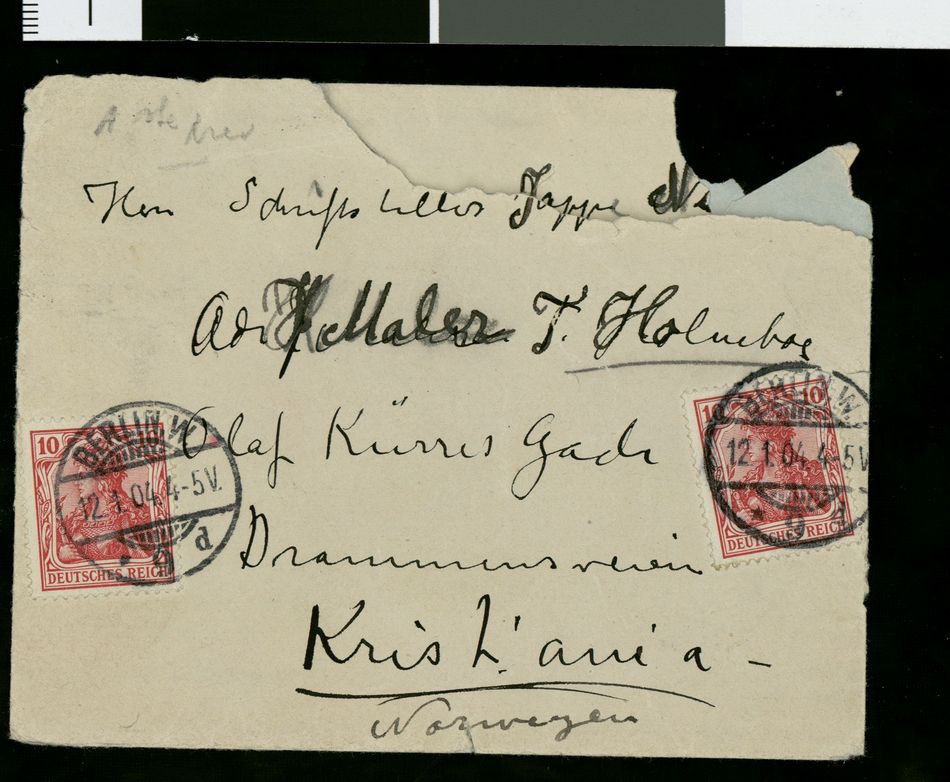 Herr Schriftsteller Jappe
Adr Maler T. Holmboe
Olaf Kürres Gade
Drammensveien
Kristiania –
Norwegen
10
BERLIN. W.
12. 1. 04. 4-5V.
* 9 d
DEUTSCHES REICH
10 10
BERLIN. W.
12. 1. 04. 4-5V
* 9
DEUTSCHES REICH